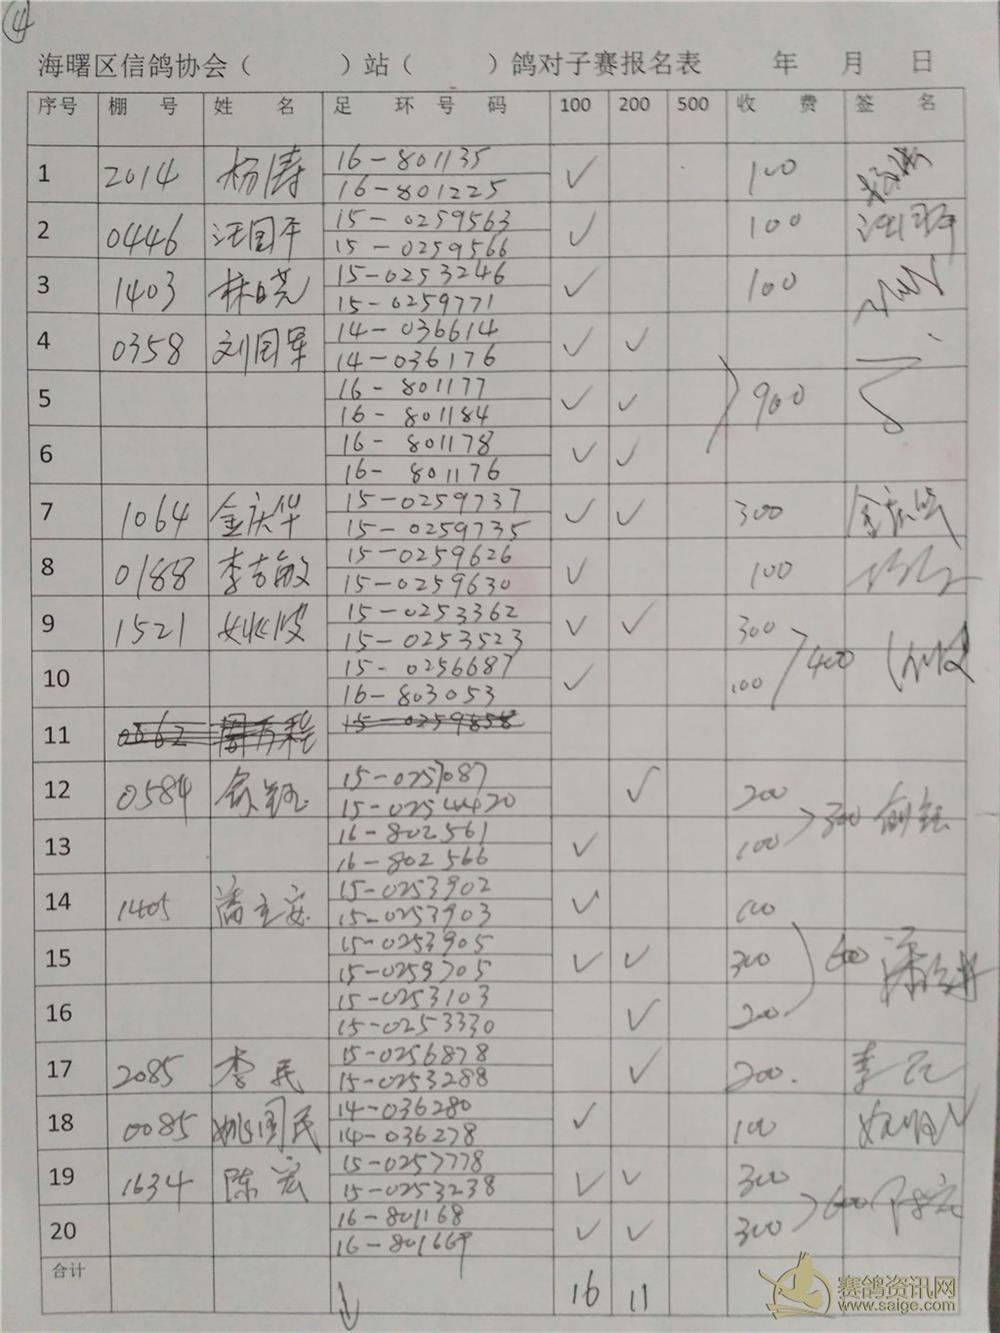 ④
海曙区信鸽协会（　　　）站（　　　）鸽对子赛报名表　　年　月　日
序号 棚 号 姓 名 足 环 号 码 100 200 500 收 费 签 名
1 2014 杨涛 16-801135 ✓ 100
16-801225
2 0446 汪国平 15-0259563 ✓ 100 汪国平
15-0259566
3 1403 林晓 15-0253246 ✓ 100
15-0259771
4 0358 刘国军 14-036614 ✓ ✓
14-036176
5 16-801177 ✓ ✓ 900
16-801184
6 16-801178 ✓ ✓
16-801176
7 1064 金庆华 15-0259737 ✓ ✓ 300 金庆华
15-0259735
8 0188 李吉敏 15-0259626 ✓ 100
15-0259630
9 1521 15-0253362 ✓ ✓ 300
15-0253523
400
10 15-0256687 ✓ 100
16-803053
11 0362 15-0259858
12 0584 俞钰 15-0257087 ✓ 200
15-0254420
300 俞钰
13 16-802561 ✓ 100
16-802566
14 1405 潘立安 15-0253902 ✓ 100
15-0253903
15 15-0253905 ✓ ✓ 300 600
15-0259705
16 15-0253103 ✓ 200
15-0253330
17 2085 李民 15-0256878 ✓ 200. 李民
15-0253288
18 0085 姚国民 14-036280 ✓ 100
14-036278
19 1634 陈宏 15-0257778 ✓ ✓ 300
15-0253238
600 陈宏
20 16-801168 ✓ ✓ 300
16-801669
合计 16 11
赛鸽资讯网
www.saige.com